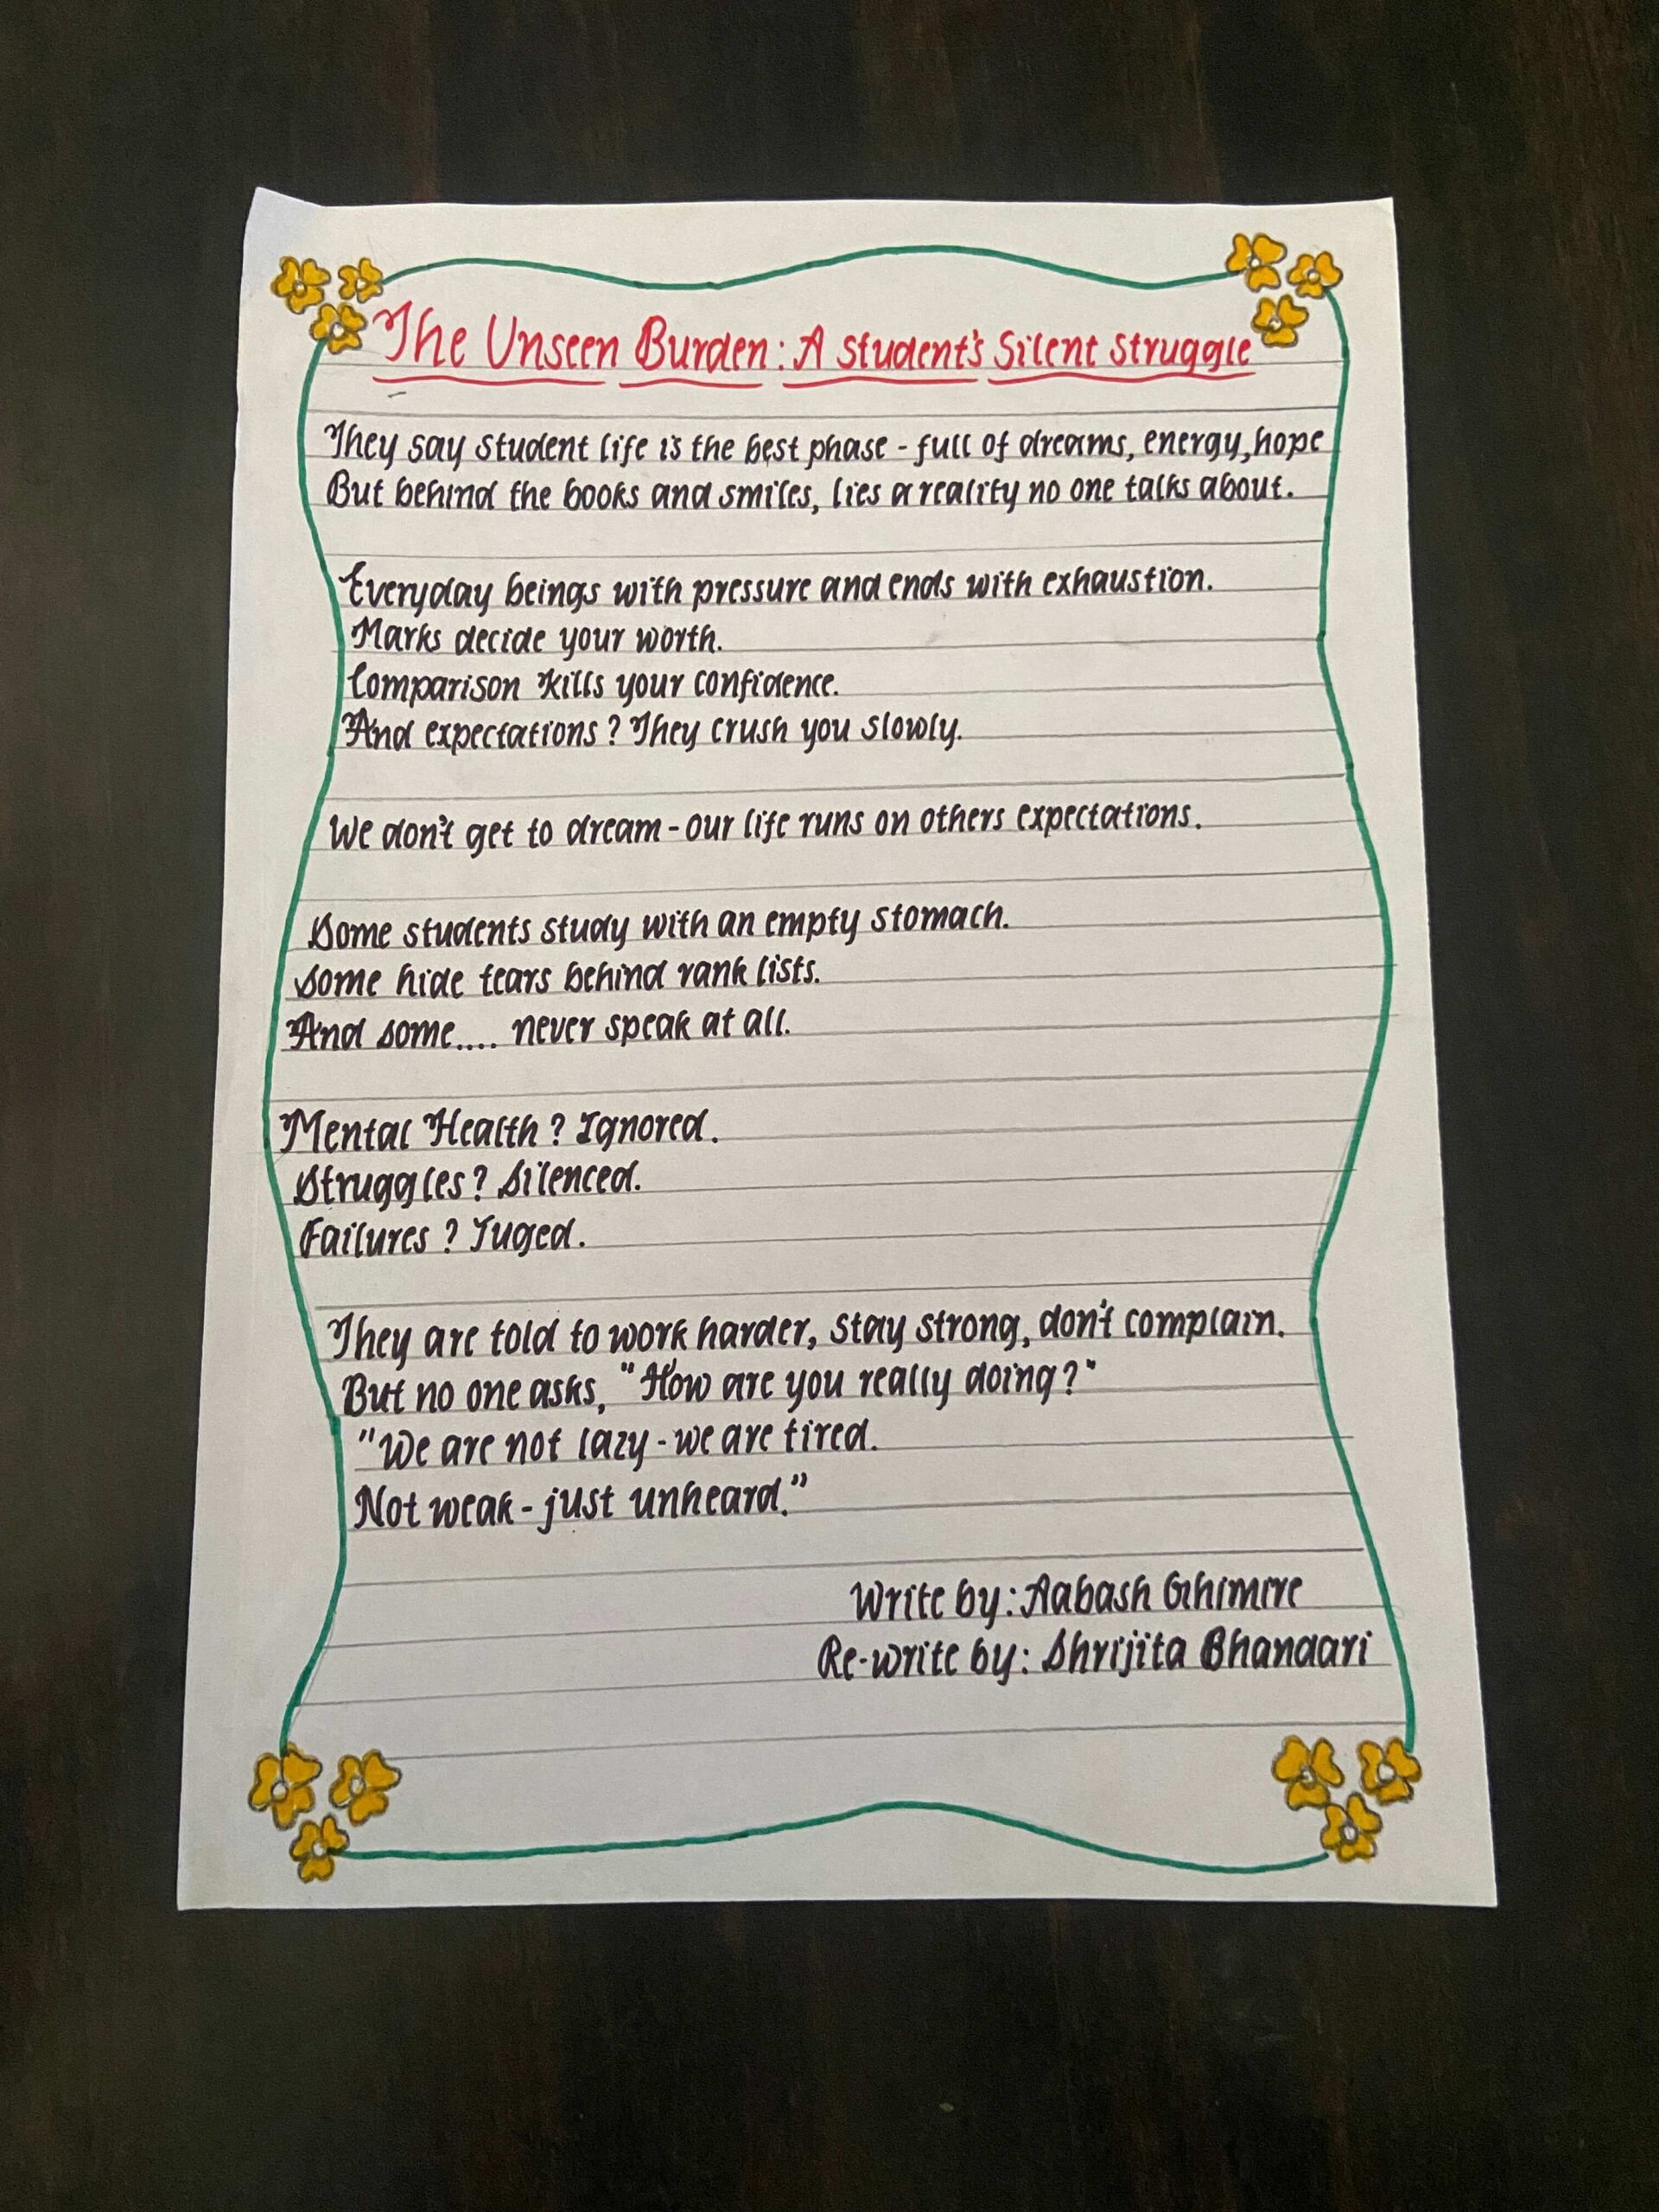 The Unseen Burden: A Student's Silent Struggle
They say student life is the best phase - full of dreams, energy, hope
But behind the books and smiles, lies a reality no one talks about.
Everyday beings with pressure and ends with exhaustion.
Marks decide your worth.
Comparison kills your confidence.
And expectations? They crush you slowly.
We don't get to dream - our life runs on others expectations.
Some students study with an empty stomach.
Some hide tears behind rank lists.
And some.... never speak at all.
Mental Health? Ignored.
Struggles? Silenced.
Failures? Juged.
They are told to work harder, stay strong, don't complain.
But no one asks, "How are you really doing?"
"We are not lazy - we are tired.
Not weak - just unheard."
Write by: Aabash Ghimire
Re-write by: Shrijita Bhandari